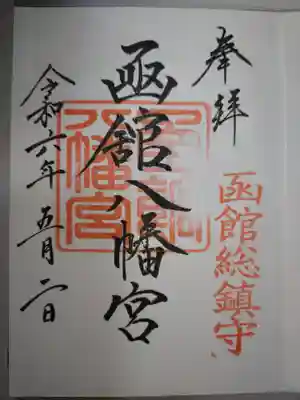 奉拝
函館総鎮守
函館八幡宮
令和六年五月二日